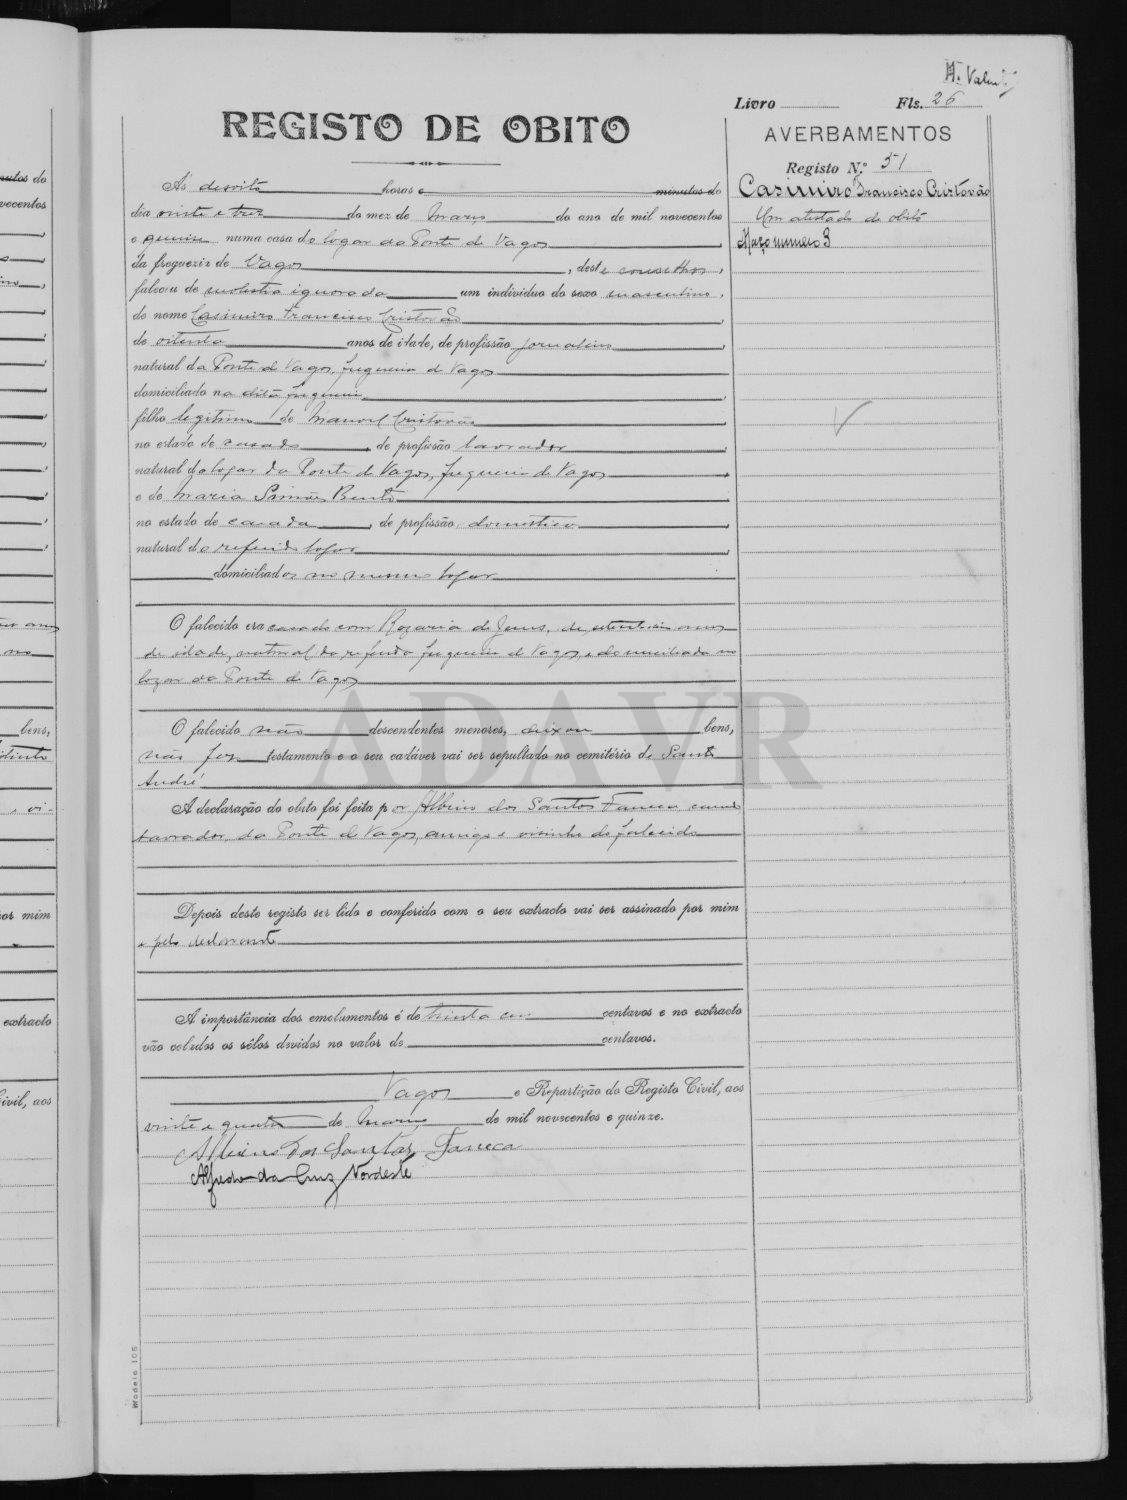 Livro Fls. 26
REGISTO DE OBITO
AVERBAMENTOS
Registo N.º 51
Casimiro Francisco Cristovão
Um atestado de obito
Maço numero 3
Ás desoito horas e minutos do
dia vinte e trez do mez de Março do ano de mil novecentos
e quinze numa casa do logar da Ponte de Vagos,
da freguezia de Vagos, deste conselho,
faleceu de molestia ignorada um individuo do sexo masculino,
de nome Casimiro Francisco Cristovão,
de oitenta anos de idade, de profissão jornaleiro,
natural da Ponte de Vagos, freguesia de Vagos
domiciliado na dita freguesia,
filho legitimo de Manoel Cristovão,
no estado de casado, de profissão lavrador,
natural do logar da Ponte de Vagos, freguesia de Vagos,
e de Maria Simões Bento
no estado de casada, de profissão domestica,
natural do referido logar,
domiciliados no mesmo logar
O falecido era casado com Rozaria de Jesus, de anos
de idade, natural da referida freguesia de Vagos, e domiciliada no
logar da Ponte de Vagos
O falecido não descendentes menores, deixou bens,
não fez testamento e o seu cadáver vai ser sepultado no cemitério de Santo
André
A declaração do obito foi feita por Albino dos Santos Faneca casado
lavrador, da Ponte de Vagos, amigo e visinho do falecido
Depois deste registo ser lido e conferido com o seu extracto vai ser assinado por mim
e pelo declarante
A importância dos emolumentos é de trinta centavos e no extracto
vão colados os sêlos devidos no valor de centavos.
Vagos e Repartição do Registo Civil, aos
vinte e quatro de Março de mil novecentos e quinze.
Albino Dos Santos Faneca
Alfredo da Cruz Nordeste
Modelo 105
ADAVR